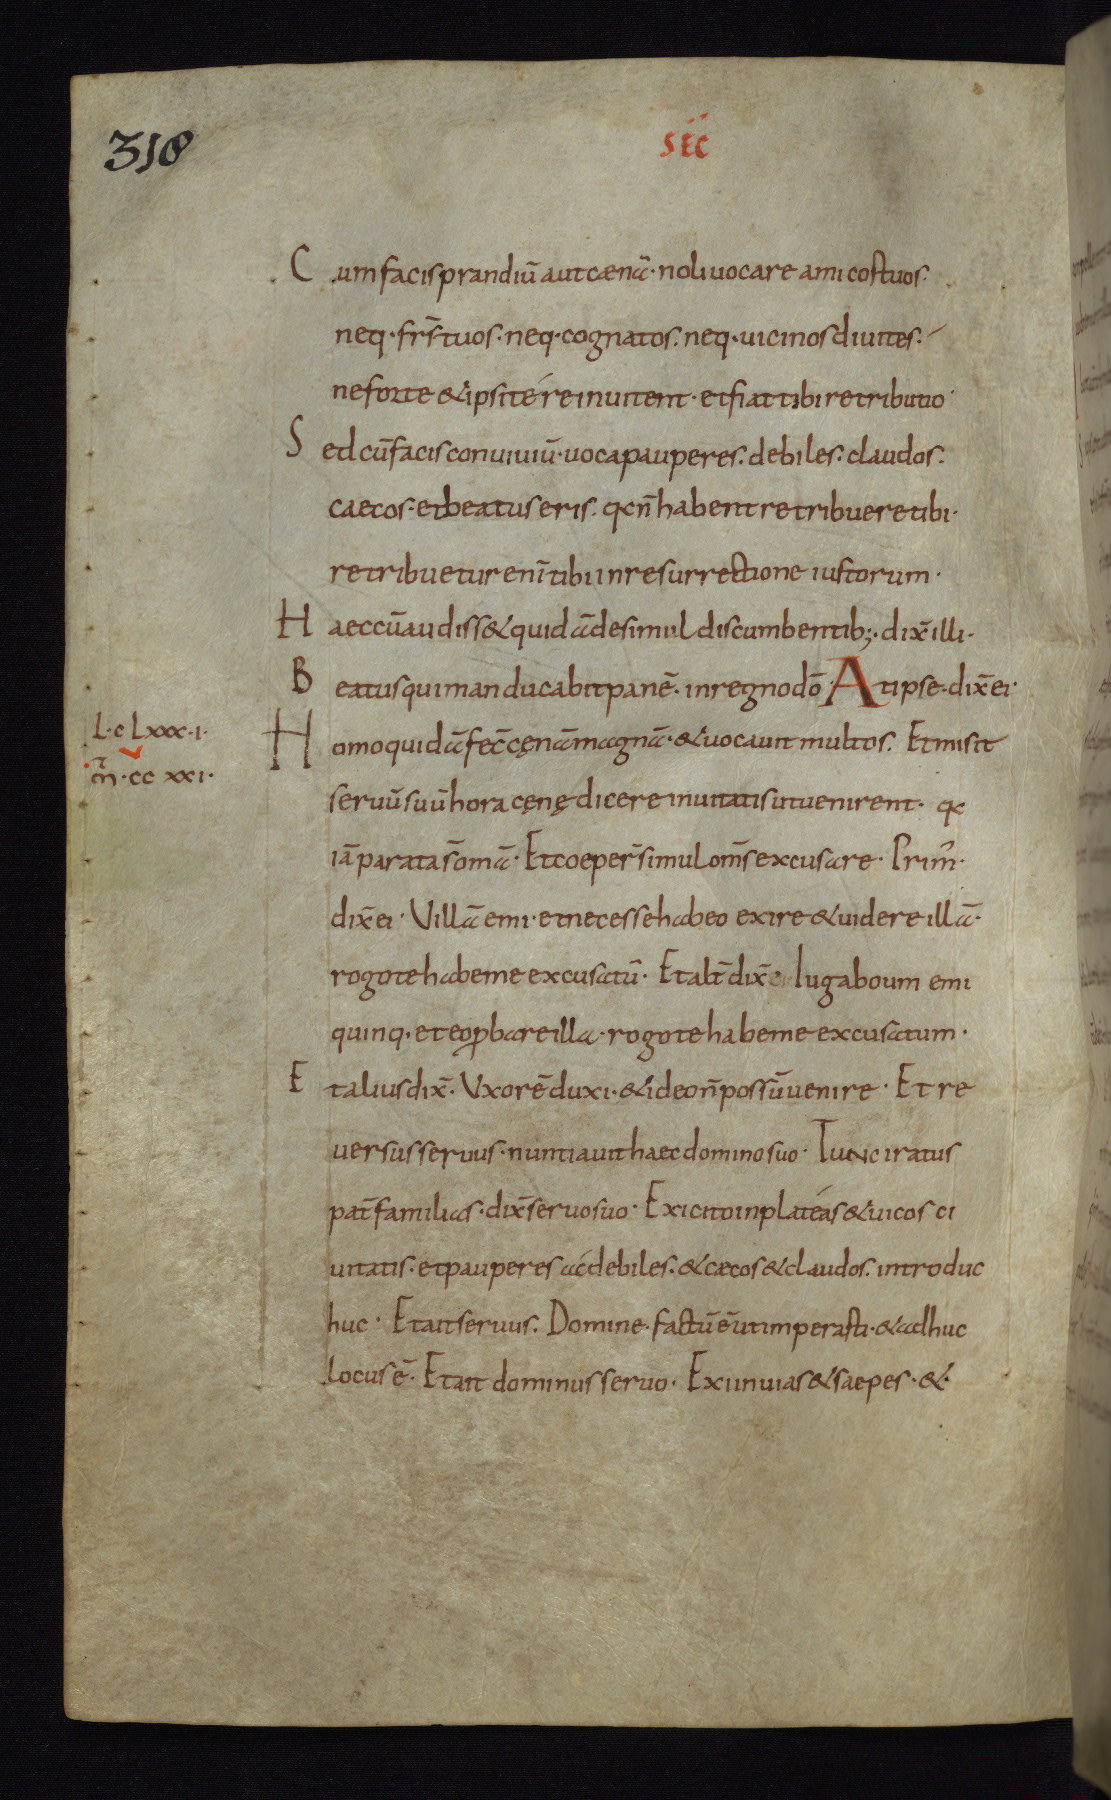 318
SEC
Cum facis prandiū aut cænā· noli uocare amicos tuos·
neq· frs̄ tuos· neq· cognatos· neq· uicinos diuites·
ne forte & ipsi té réinuitent· et fiat tibi retributio·
Sed cū facis conuiuiū· uoca pauperes· debiles· claudos·
caecos· et beatus eris· q n̄ habent retribuere tibi·
retribuetur enī tibi in resurrectione iustorum·
Haec cū audiss& quidā de simul discumbentib;· dix̄ illi·
Beatus qui manducabit panē· in regno dō Atipse· dix̄ ei·
L·c Lxxx·i·
Homo quidā fec̄ cęnā magnā· & uocauit multos· Et misit
m̄·cc xxi·
seruū suū hora cęnę dicere inuitatis ut uenirent· q
iā parata s̄ omā· Et coeper̄ simul omēs excusare· Prim̄·
dix̄ ei· Villā emi· et necesse habeo exire & uidere illā·
rogo te habe me excusatū· Et alt̄ dix̄ Iuga boum emi
quinq· et eo ꝓbare illa· rogo te habe me excusatum·
Et alius dix̄· Vxorē duxi· & ideo n̄ possū uenire· Et re
uersus seruus· nuntiauit haec domino suo· Tunc iratus
pat̄ familias· dix̄ seruo suo· Exi cito in plateás & uicos ci
uitatis· et pauperes ac debiles· & cæcos & claudos· introduc
huc· Et ait seruus· Domine· factū ē ut imperasti· & adhuc
locus ē· Et ait dominus seruo· Exi in uias & saepes· &·